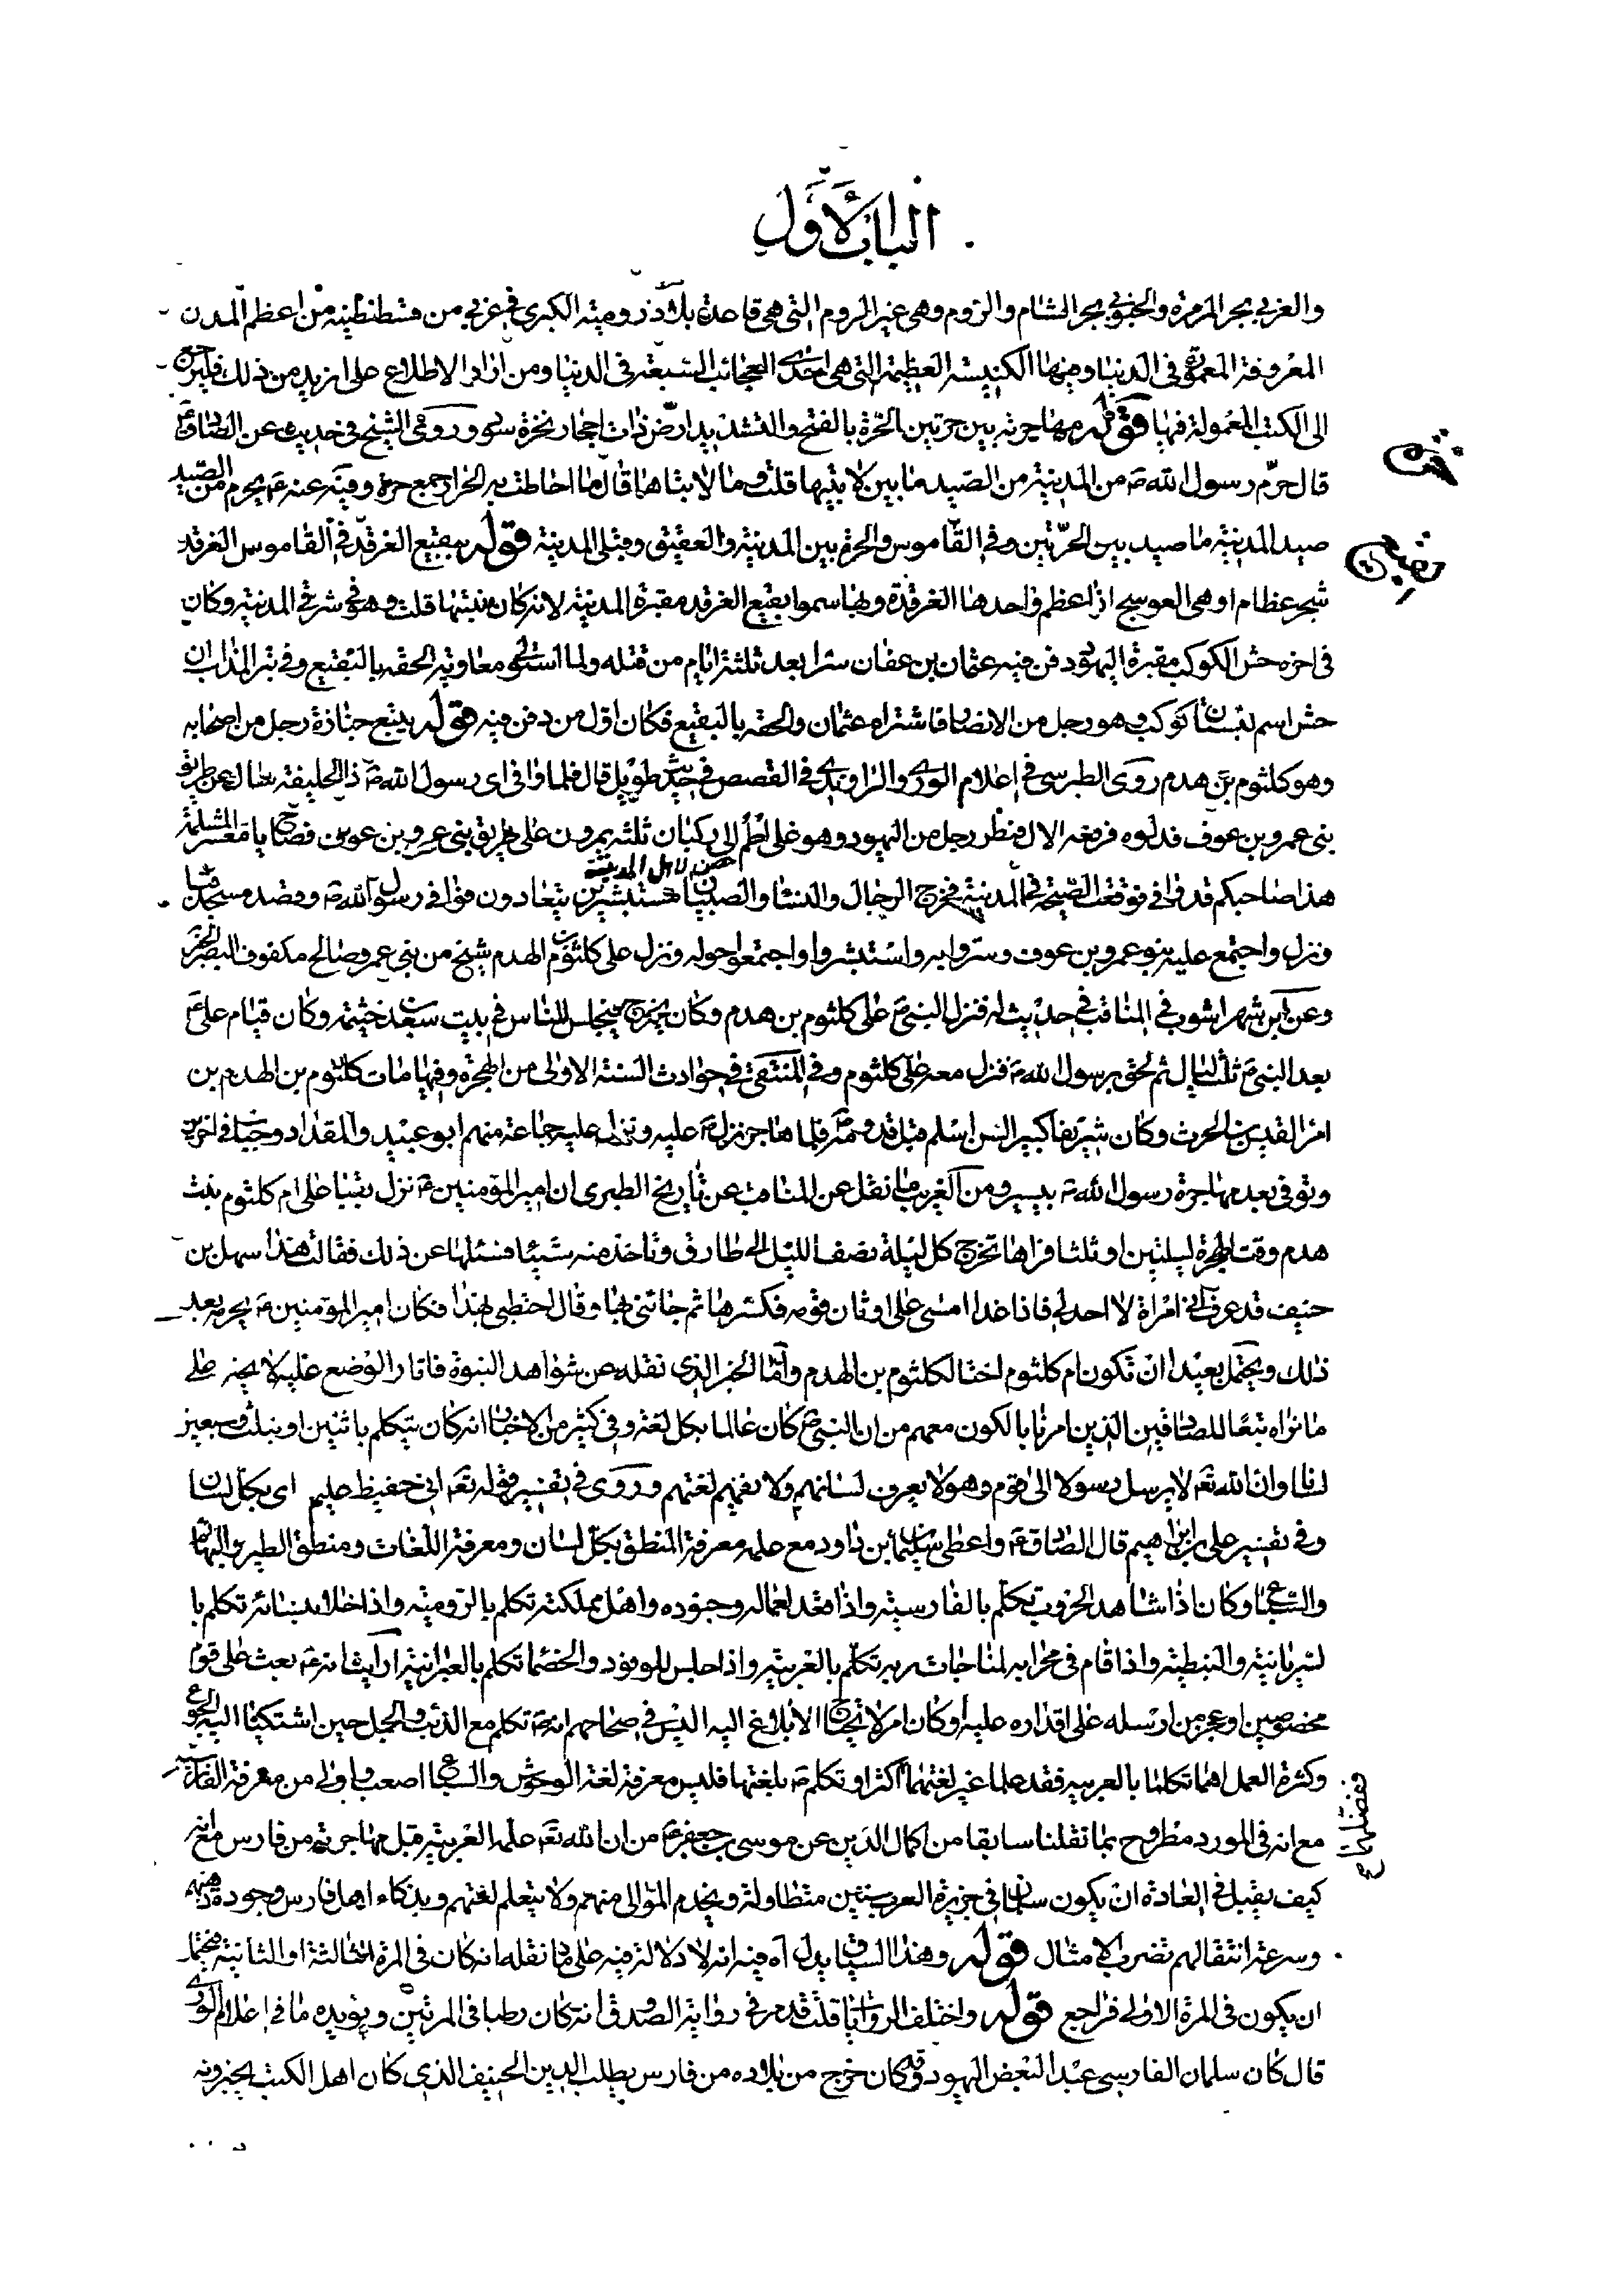 الباب الأول
والغربي بحر المرمرة والجنوبي بحر الشام والروم وهي غير الروم التي هي قاعدة بلاد رومية الكبرى في غربي من قسطنطنية من اعظم المدن
المعروفة المعمورة في الدنيا ومنها الكنيسة العظيمة التي هي احدى العجائب السبعة في الدنيا ومن اراد الاطلاع على ازيد من ذلك فليرجع
الى الكتب المعمولة فيها قوله مهاجرته بين حرتين الحرة بالفتح والتشديد ارض ذات احجار نخرة سود وروى الشيخ في حديث عن الصادق ع
قال حرّم رسول الله ص من المدينة من الصيد ما بين لابتيها قلت وما لابتاها قال ما احاطت به الحرار جمع حرة وفيه عنه ع يحرم من الصيد
صيد المدينة ما صيد بين الحرّتين وفي القاموس والحرم بين المدينة والعقيق وقبلي المدينة قوله ببقيع الغرقد في القاموس الغرقد
شجر عظام او هي العوسج اذا عظم واحدها الغرقدة وبها سموا بقيع الغرقد مقبرة المدينة لانه كان منبتها قلت وهو في شرقي المدينة وكان
في اخره حش الكوكب مقبرة اليهود دفن فيه عثمان بن عفان سرا بعد ثلثة ايام من قتله ولما استولى معاوية الحقه بالبقيع وفي
حش اسم بستان كوكب وهو رجل من الانصار فاشتراه عثمان والحقه بالبقيع فكان اول من دفن فيه قوله يتبع جنازة رجل من اصحابه
وهو كلثوم بن هدم روى الطبرسي في اعلام الورى والراوندي في القصص في حديث طويل قال فلما وافى اي رسول الله ص ذا الحليفة سال عن طريق
بني عمرو بن عوف فدلوه فرفعه الال فنظر رجل من اليهود وهو على اطم الى ركبان ثلثة يمرون على طريق بني عمرو بن عوف فصاح يا معشر المسلمة
حصن لاهل المدينة
هذا صاحبكم قد وافى فوقعت الصيحة في المدينة فخرج الرجال والنساء والصبيان مستبشرين يتعادون فوافى رسول الله ص وقصد مسجد قبا
ونزل واجتمع عليه بنو عمرو بن عوف وسروا به واستبشروا واجتمعوا حوله ونزل على كلثوم بن الهدم شيخ من بني عمرو صالح مكفوف البصر الخبر
وعن ابن شهراشوب في المناقب في حديث له فنزل النبي ص على كلثوم بن هدم وكان يخرج فيجلس للناس في بيت سعد بن خيثمة وكان قيام علي ع
بعد النبي ص ثلث ليال ثم لحق برسول الله ص فنزل معه على كلثوم وفي المنتقى في حوادث السنة الاولى من الهجرة وفيها مات كلثوم بن الهدم بن
امرا القيس بن الحرث وكان شريفا كبير السن اسلم قبل قدومه ص فلما هاجر نزل ص عليه ونزل عليه جماعة منهم ابو عبيد والمقداد وخباب في اخرين
وتوفى بعد مهاجرة رسول الله ص بيسير ومن الغريب ما نقل عن المناقب عن تاريخ الطبري ان امير المؤمنين ع نزل بقبا على ام كلثوم بنت
هدم وقت الهجرة ليلتين او ثلثا فراها تخرج كل ليلة نصف الليل الى طارق وتاخذ منه شيئا فسئلها عن ذلك فقالت هذا سهل بن
حنيف قد عرف اني امراة لا احد لي فاذا غدا امسى على اوثان قومه فكسرها ثم جائني بها وقال احتطبي بهذا فكان امير المؤمنين ع يحرمه بعد
ذلك ويحتمل بعيدا ان تكون ام كلثوم اختا لكلثوم بن الهدم وأما الخبر الذي نقله عن شواهد النبوة فاثار الوضع عليه لايحه على
ما نراه تبعا للصادقين الذين امرنا بالكون معهم من ان النبي ص كان عالما بكل لغة وفي كثير من الاخبار انه كان يتكلم باثنين او بثلث وسبعين
لسانا وان الله تع لا يرسل رسولا الى قوم وهو لا يعرف لسانهم ولا يفهم لغتهم وروى في تفسير قوله تع اني حفيظ عليم اي بكل لسان
وفي تفسير علي بن ابراهيم قال الصادق ع واعطى سليمان بن داود مع علمه معرفة المنطق بكل لسان ومعرفة اللغات ومنطق الطير والبهائم
والسباع وكان اذا شاهد الحروب تكلم بالفارسية واذا قعد لعماله وجنوده واهل مملكته تكلم بالرومية واذا خلا بنسائه تكلم با
لسريانية والنبطية واذا قام في محرابه لمناجات ربه تكلّم بالعربية واذا جلس للوفود والخصماء تكلم بالعبرانية ارايت انه ع بعث على قوم
مخصوصين او عجز من ارسله على اقداره عليه او كان امر لا يحتاج الابلاغ اليه اليس في صحاحهم انه ص تكلم مع الذئب والجمل حين اشتكيا اليه الجوع
وكثرة العمل اهما تكلما بالعربيه فقد علما غير لغتهما اكثر او تكلم ص بلغتها فليس معرفة لغة الوحوش والسباع اصعب واولى من معرفة الفارسية
مع انه في المورد مطروح بما نقلنا سابقا من اكمال الدين عن موسى بن جعفر ع من ان الله تع علمه العربية قبل مهاجرته من فارس مع انه
كيف يقبل في العادة ان يكون سلمان في جزيرة العرب سنين متطاولة ويخدم الموالي منهم ولا يتعلم لغتهم وبذكاء اهل فارس وجودة ذهنهم
وسرعة انتقالهم تضرب الامثال قوله وهذا السياق يدل اه فيه انه لا دلالة فيه على ما نقله انه كان في المرة الثالثة او الثانية فيحتمل
ان يكون في المرة الاولى فراجع قوله واختلف الروايات قلت قد مر في رواية الصدوق انه كان رطبا في المرتين ويؤيده ما في اعلام الورى
قال كان سلمان الفارسي عبدا لبعض اليهود وقد كان خرج من بلاده من فارس يطلب الدين الحنيف الذي كان اهل الكتب يخبرونه